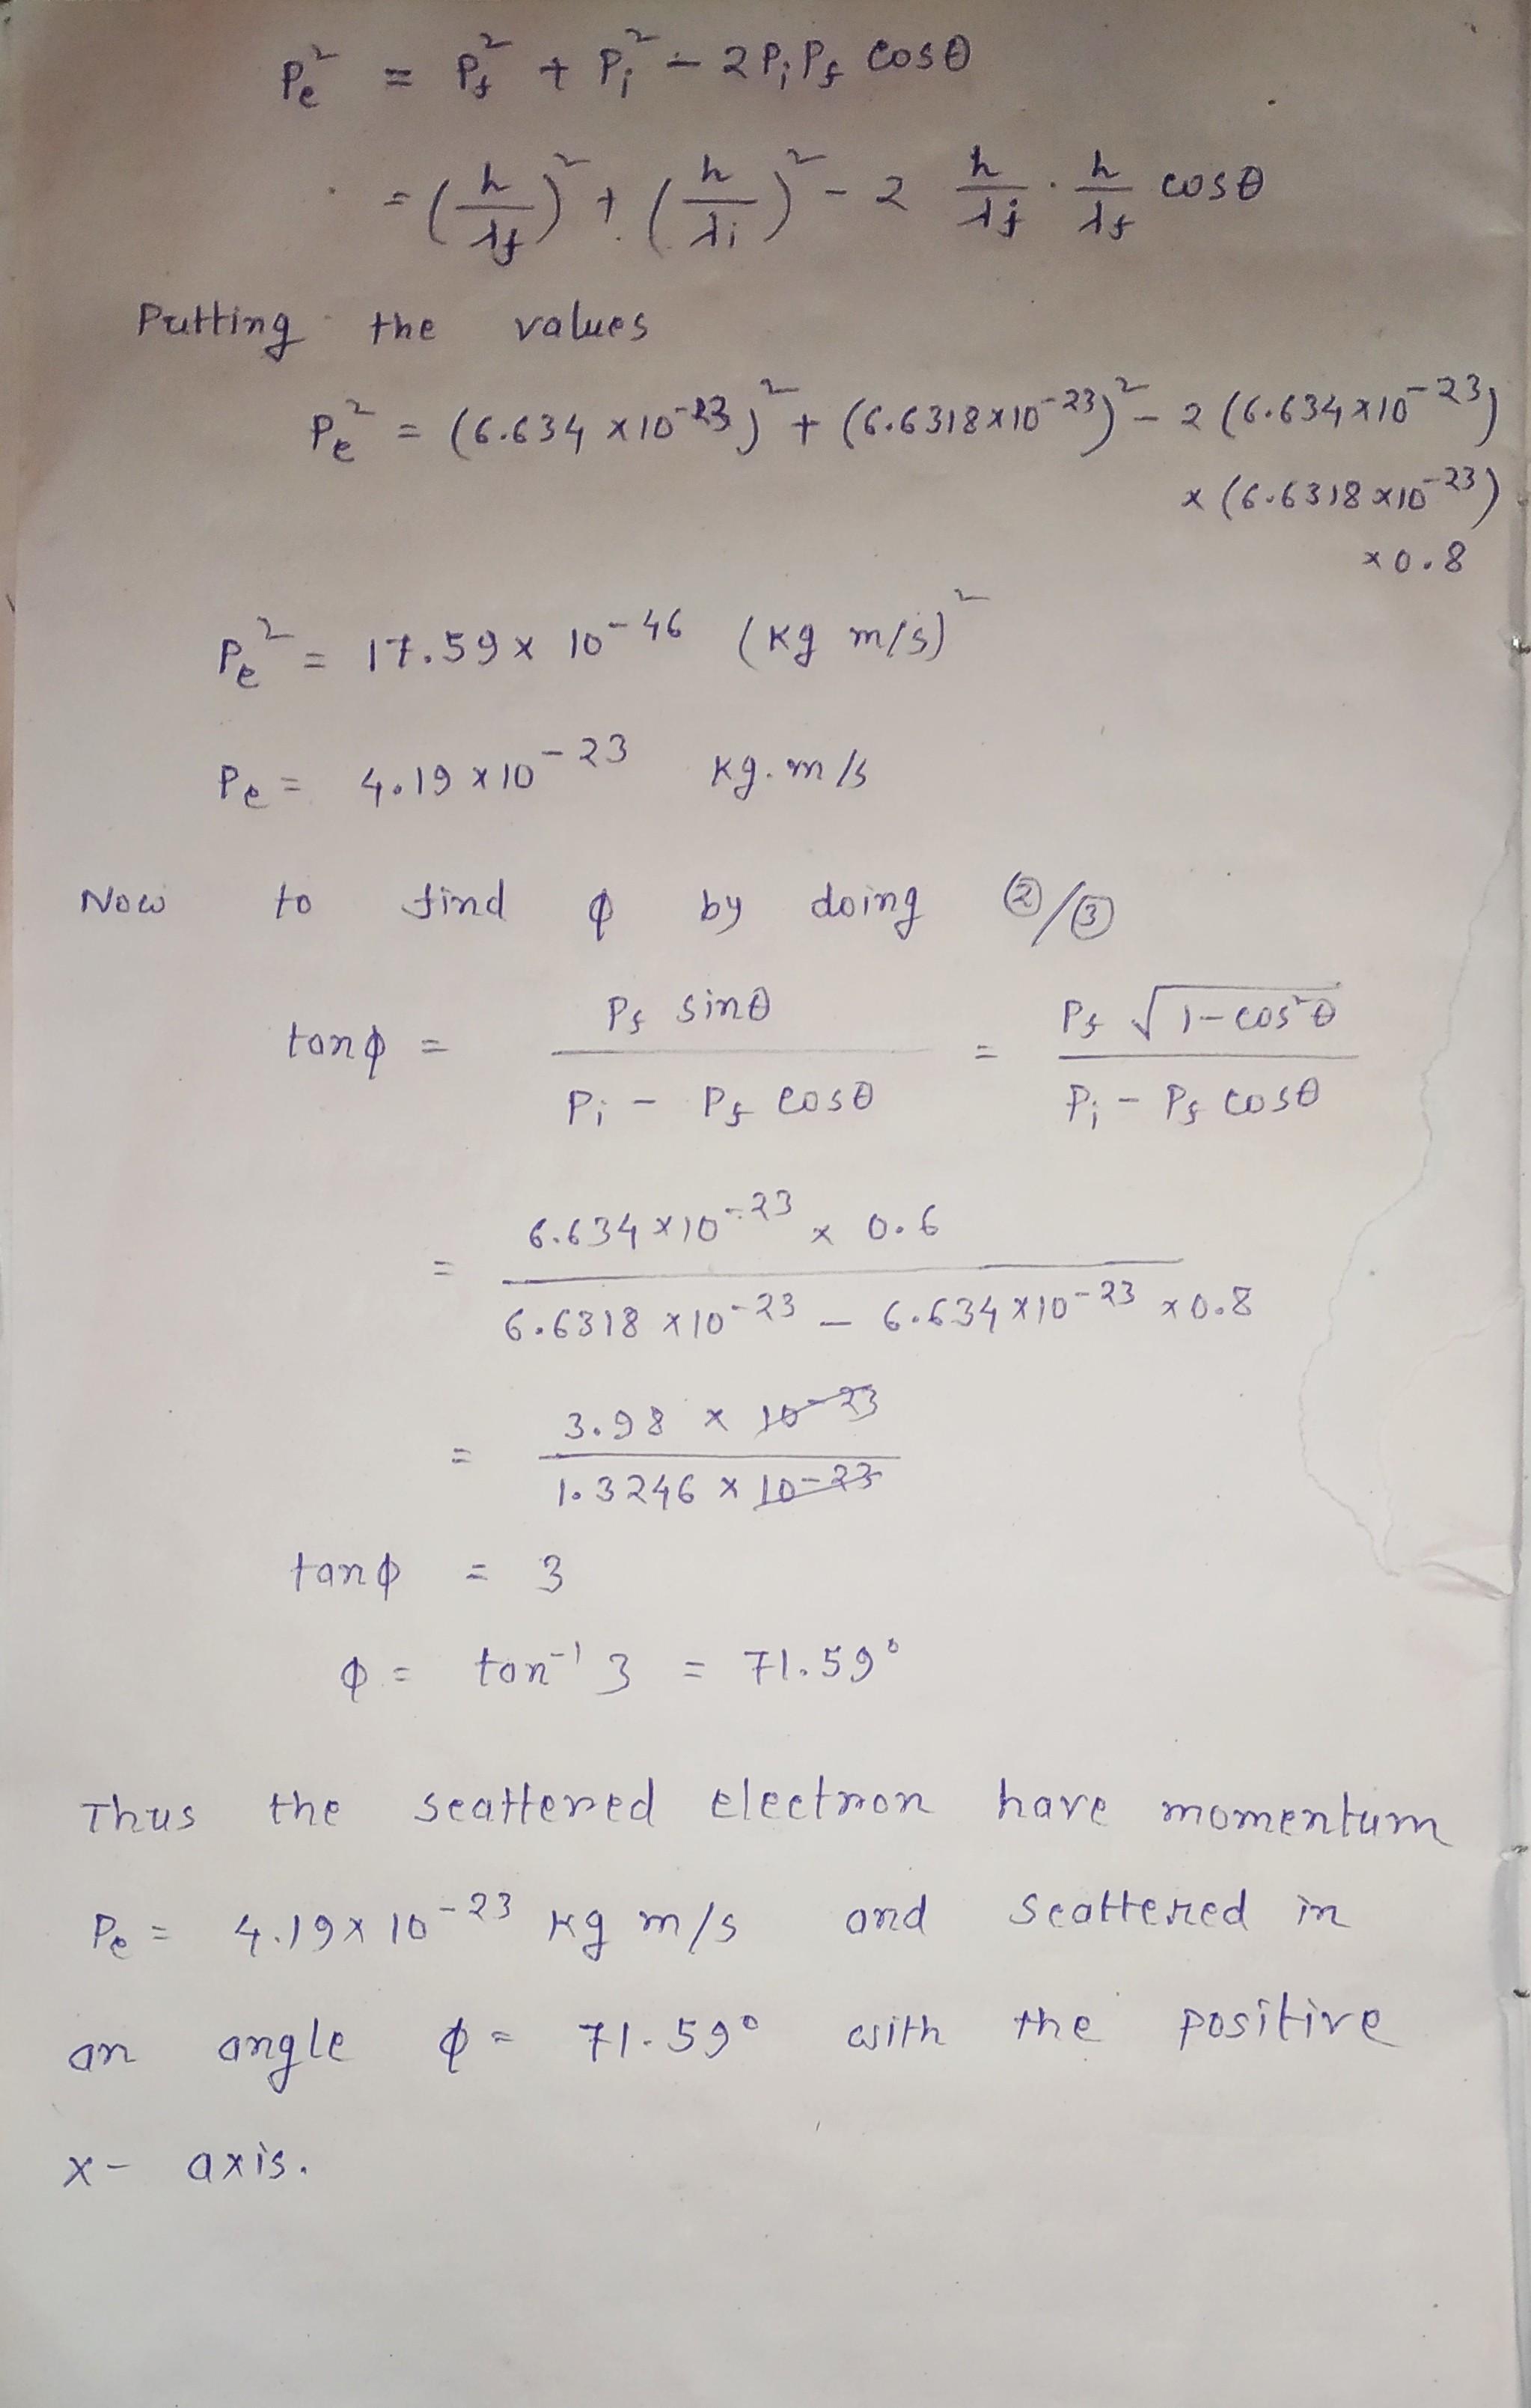 Pe² = Pf² + Pi² - 2PiPf cosθ
= (h/λf)² + (h/λi)² - 2 h/λi · h/λf cosθ
Putting the values
Pe² = (6.634 x 10⁻²³)² + (6.6318x10⁻²³)² - 2 (6.634x10⁻²³)
x (6.6318x10⁻²³)
x0.8
Pe² = 17.59x 10⁻⁴⁶ (kg m/s)²
Pe = 4.19x10⁻²³ kg.m/s
Now to find φ by doing ②/③
tanφ = Pf sinθ / Pi - Pf cosθ = Pf √1-cos²θ / Pi - Pf cosθ
= 6.634x10⁻²³ x 0.6 / 6.6318 x10⁻²³ - 6.634x10⁻²³ x0.8
= 3.98 x 10⁻²³ / 1.3246 x 10⁻²³
tanφ = 3
φ = tan⁻¹ 3 = 71.59°
Thus the scattered electron have momentum
Pe = 4.19x10⁻²³ kg m/s and scattered in
an angle φ = 71.59° with the positive
x- axis.